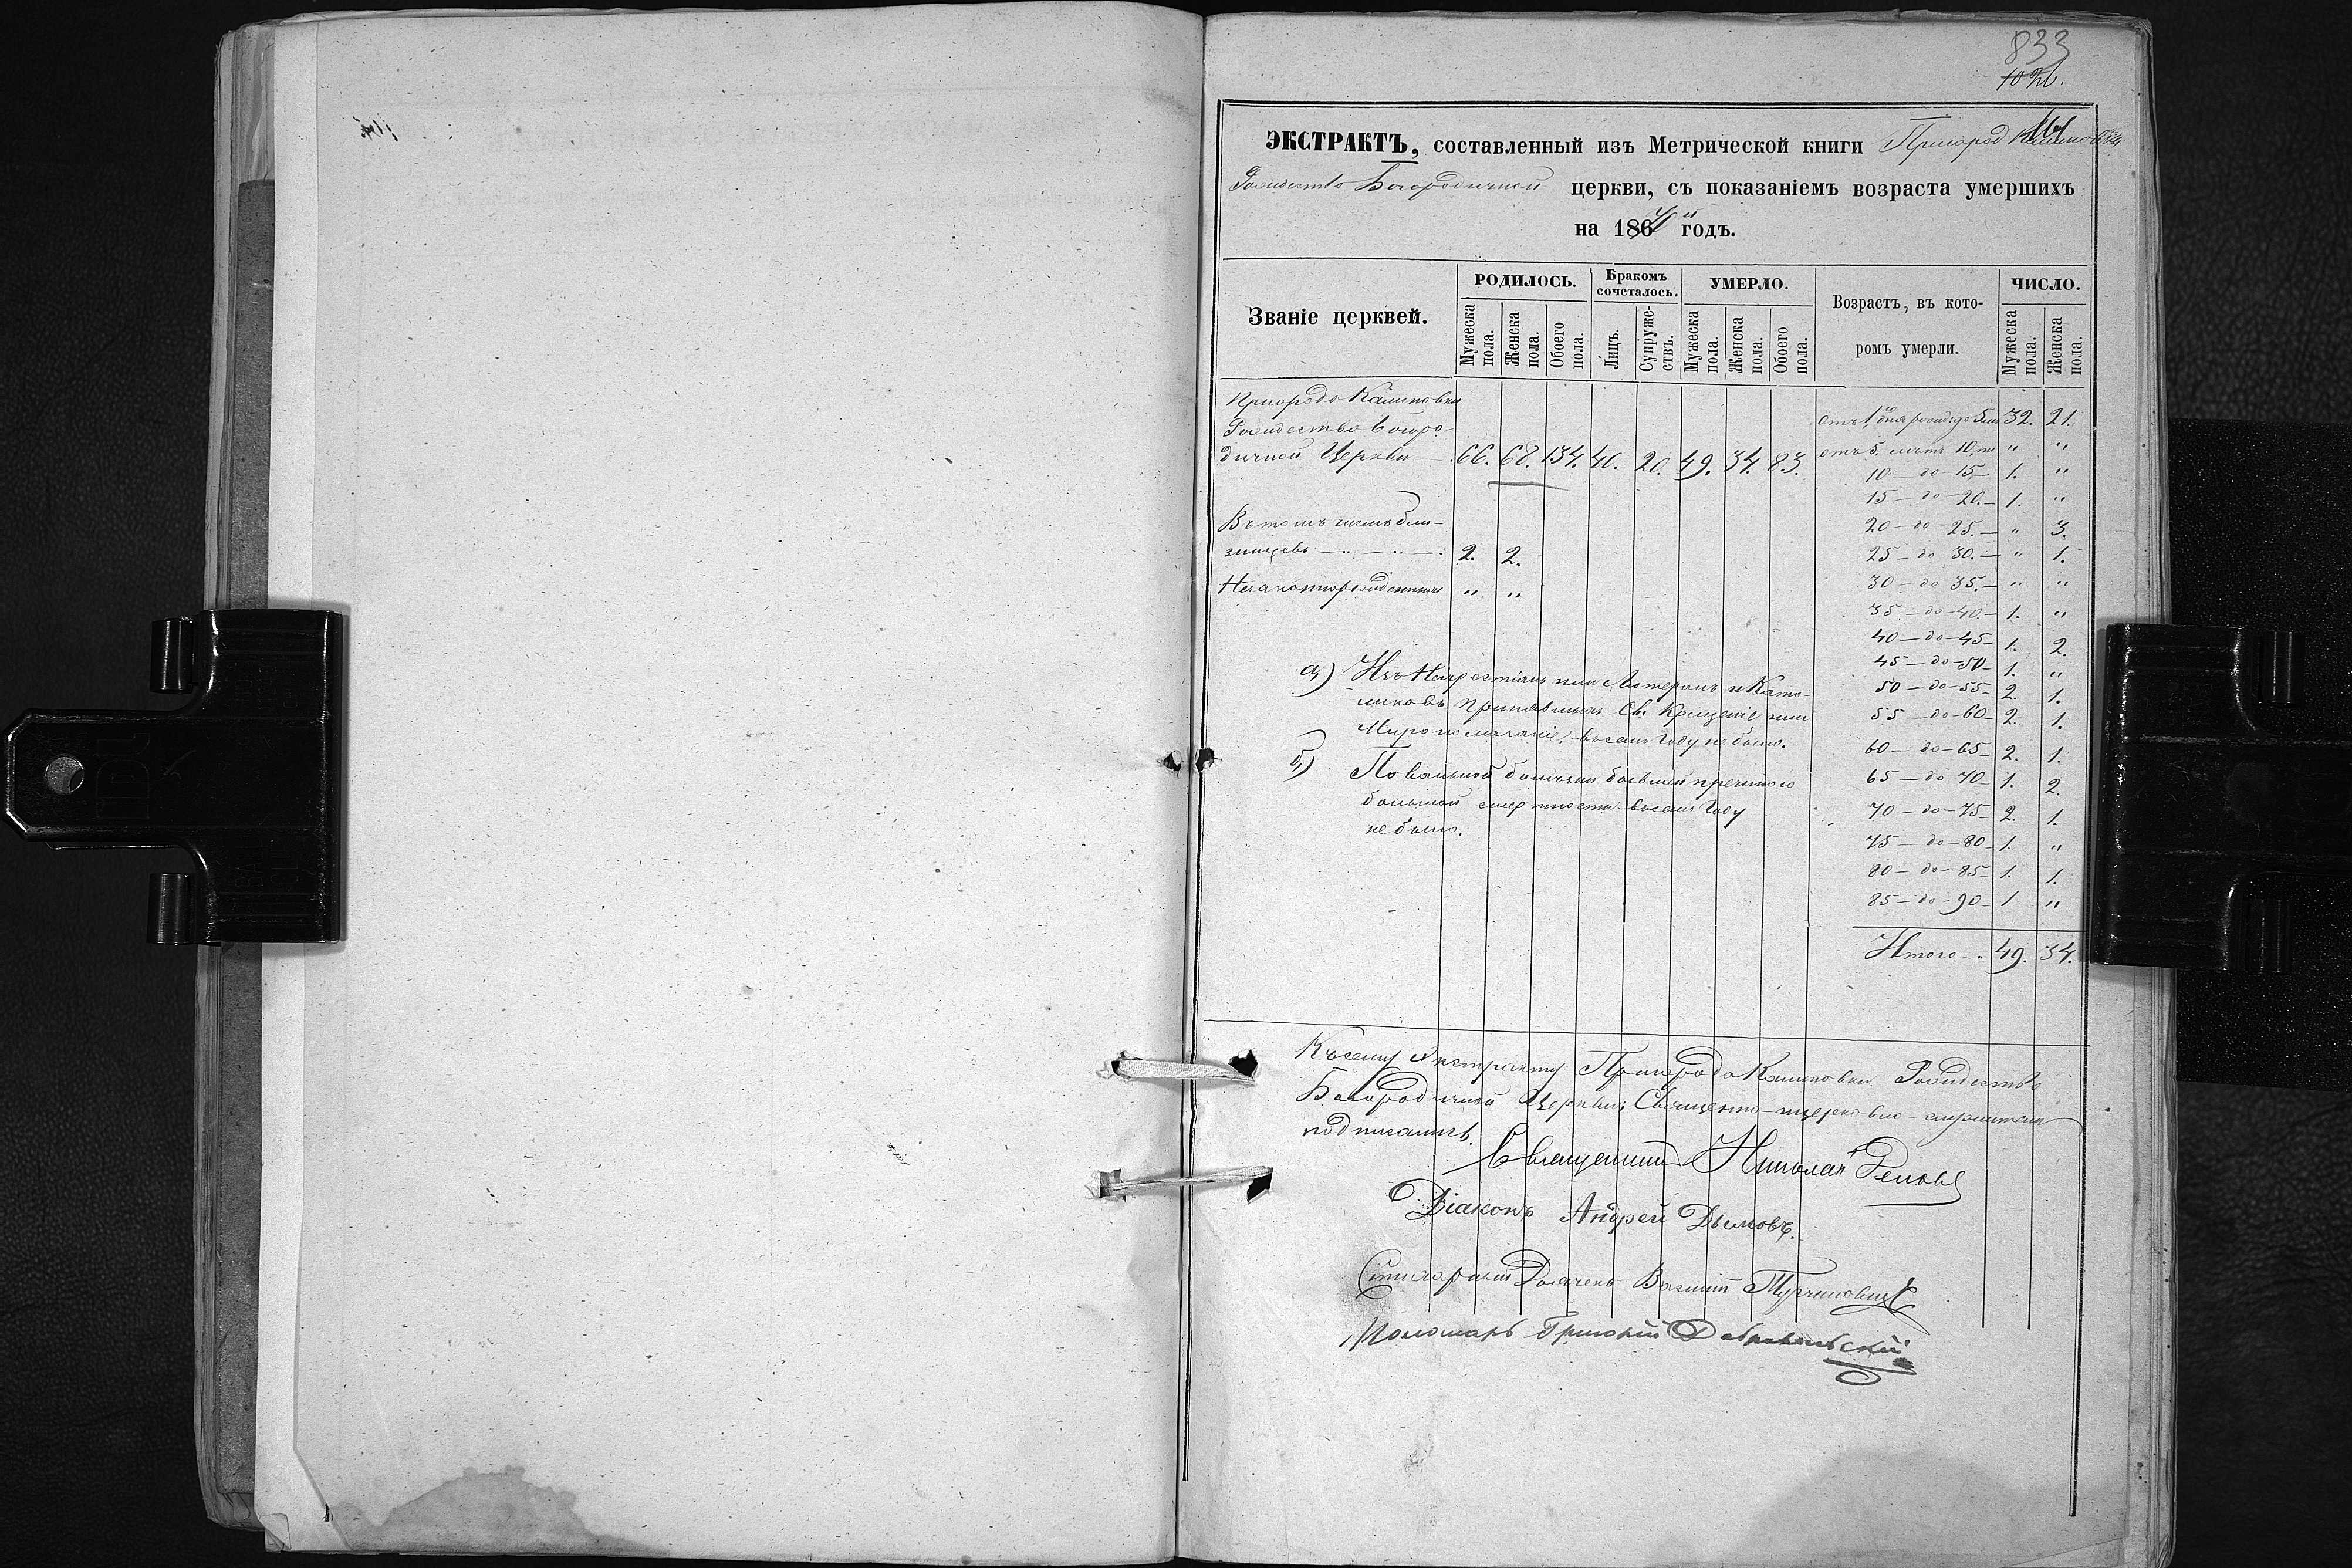 833
ЭКСТРАКТЪ, составленный изъ Метрической книги Пригорода Калиновки
Рождество Богородичной церкви, съ показаніемъ возраста умершихъ
на 186 годъ.
Званіе церквей.
РОДИЛОСЬ.
Бракомъ сочеталось.
УМЕРЛО.
Возрастъ, въ которомъ умерли.
ЧИСЛО.
Мужеска пола. Женска пола. Обоего пола. Лицъ. Супружествъ. Мужеска пола. Женска пола. Обоего пола. Мужеска пола. Женска пола.
Пригорода Калиновки
Рождество Богоро-
дичной Церкви — 66. 68. 134. 40. 20. 49. 34. 83.
Въ томъ числѣ бли-
знецевъ — 2. 2.
Незаконнорожденныхъ " "
отъ 1 дня рожд: до 5 лѣт 32. 21.
отъ 5. лѣтъ 10. " "
10 — до — 15 — 1. "
15 — до — 20. — 1. "
20 — до 25. — " 3.
25 — до 30. — " 1.
30 — до 35. — " "
35 — до — 40. — 1. "
40 — до — 45 — 1. 2.
45 — до — 50 — 1. "
50 — до — 55 — 2. 1.
55 — до — 60 — 2. 1.
60 — до — 65 — 2. 1.
65 — до 70 — 1. 2.
70 — до — 75 — 2. 1.
75 — до — 80 — 1. "
80 — до — 85 — 1. 1.
85 — до — 90 — 1 "
Итого — 49. 34.
а) Изъ Нехристіанъ или Лютеранъ и Като-
ликовъ принявшихъ Св. Крещеніе или
Миропомазаніе, въ семъ году не было.
б) Повальной болѣзни бывшей причиною
большой смертности въ семъ Году
не было.
Къ сему Экстракту Пригорода Калиновки Рождество
Богородичной Церкви Священно-церковно-служители
подписались.
Священникъ Николай
Діаконъ Андрей Дымовъ.
Стихарный Дьячекъ Василій
Пономарь Григорій